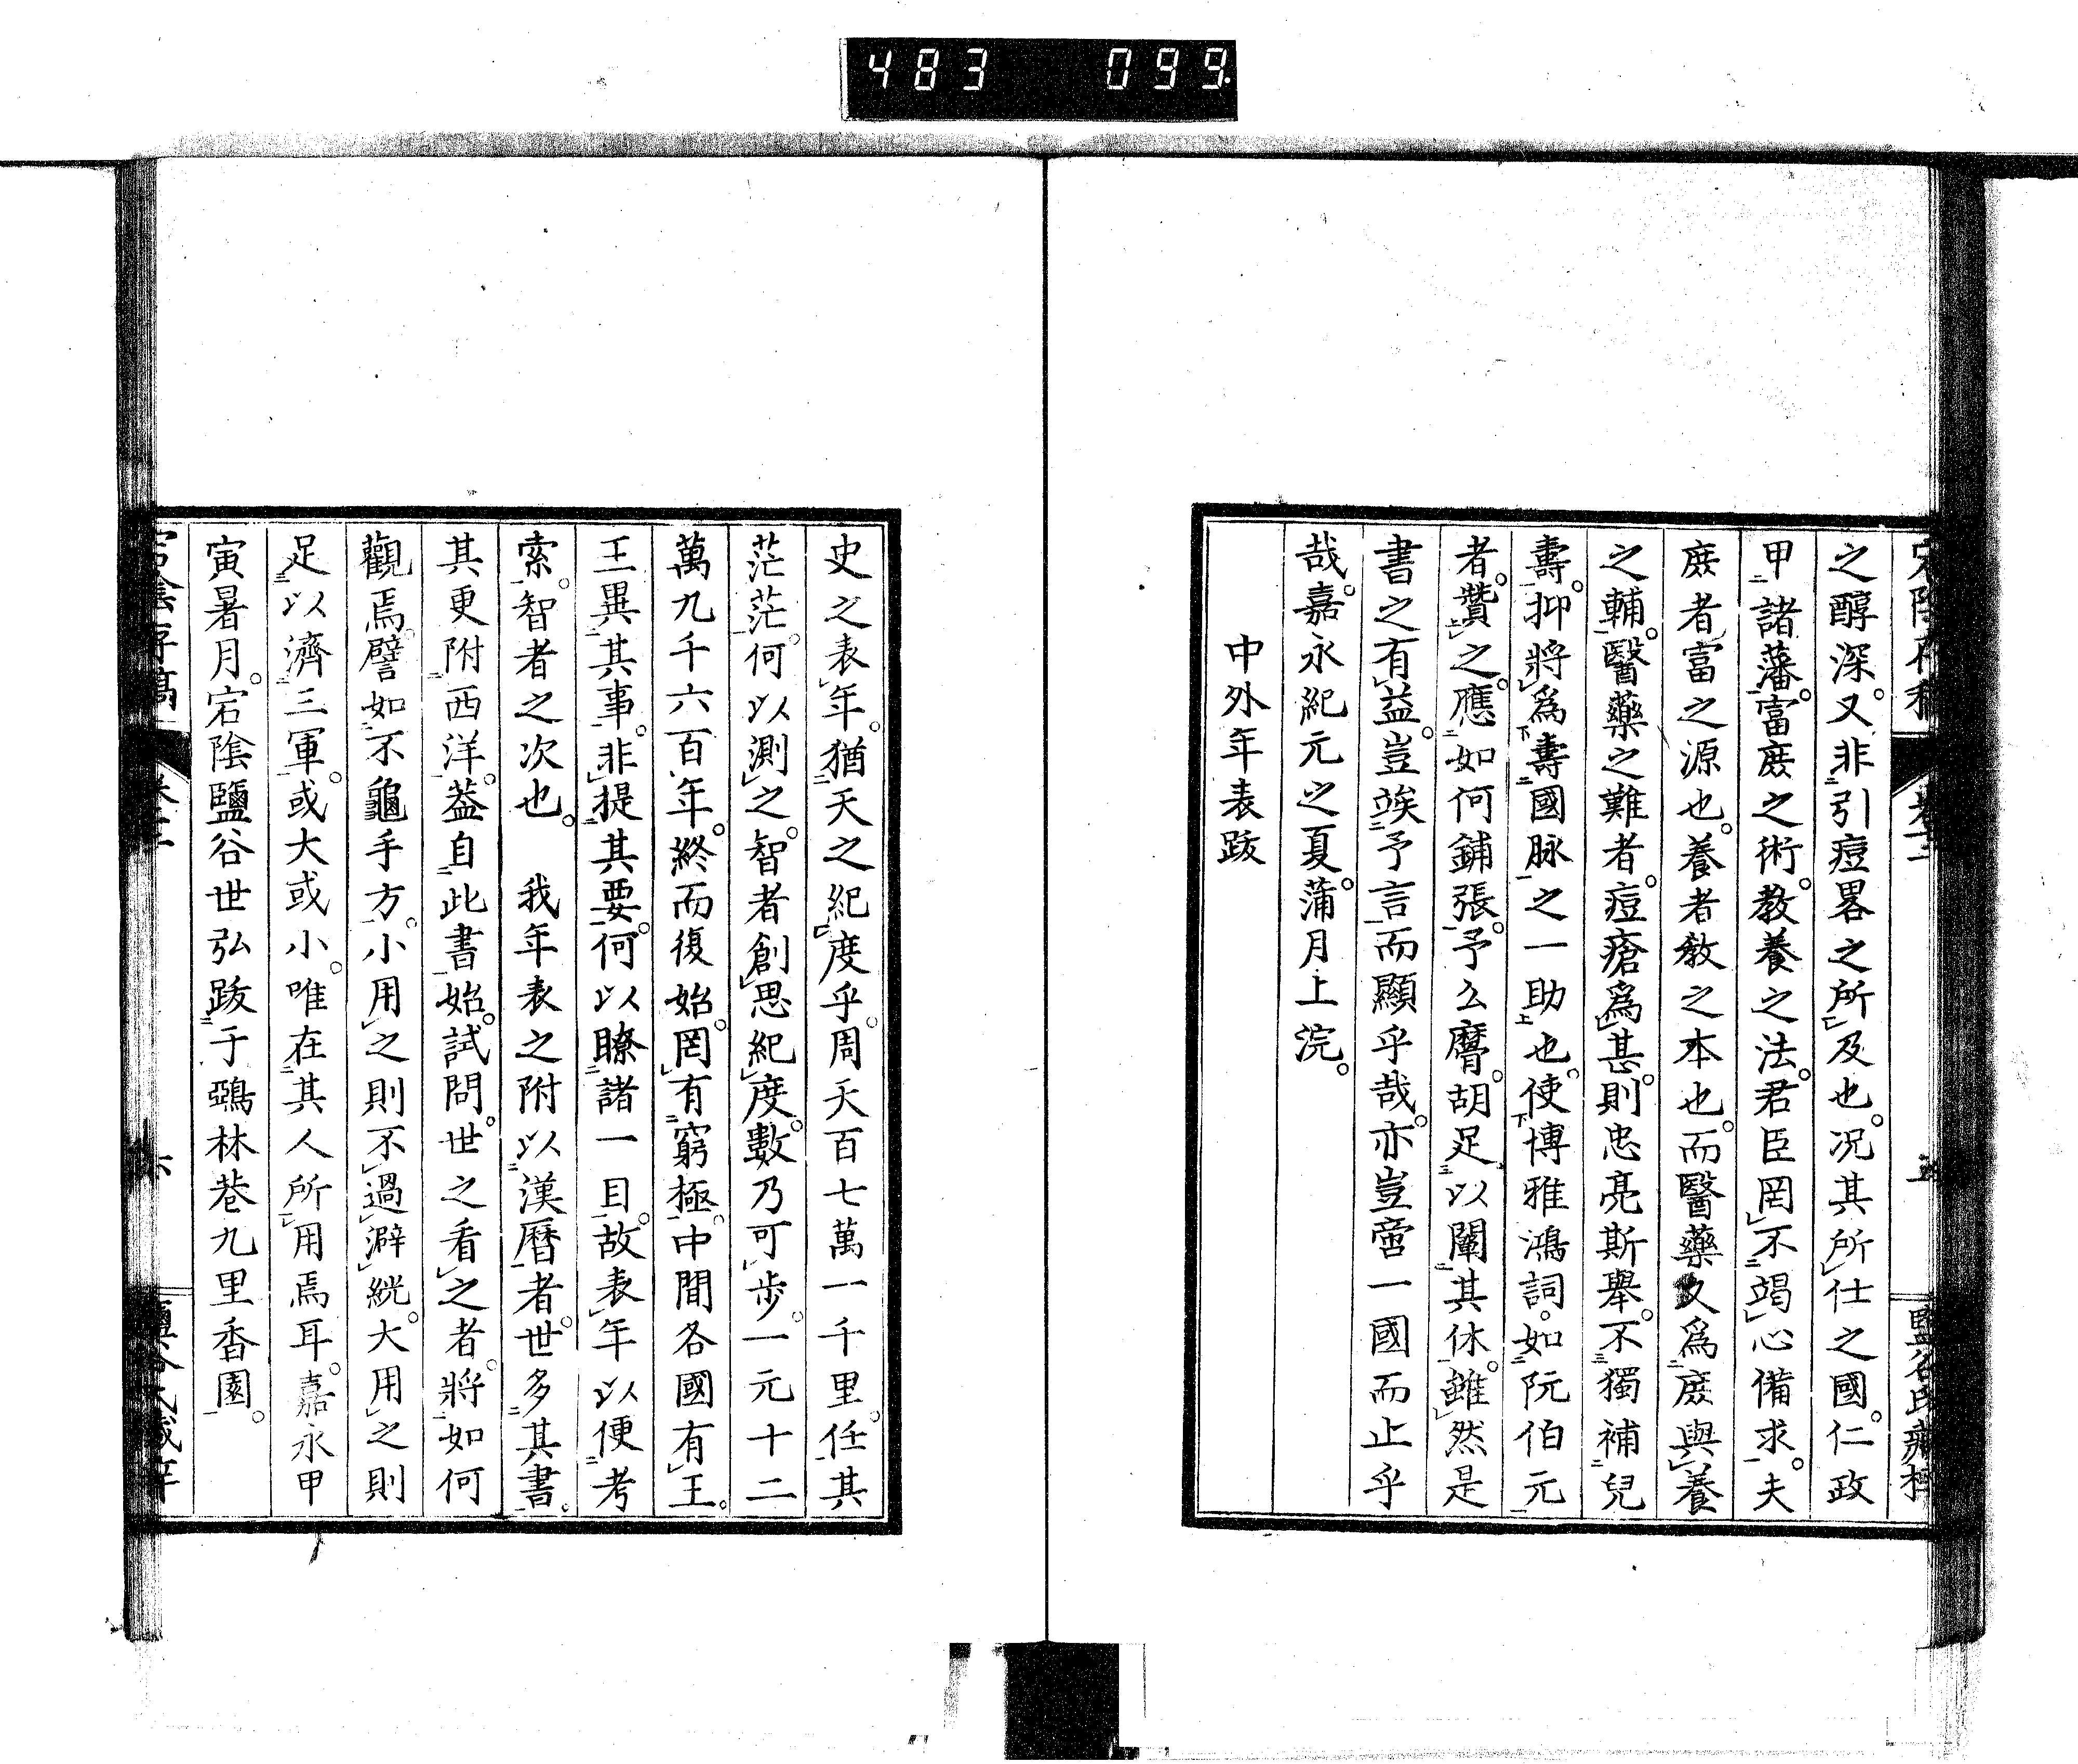 483 099
之醇深。又非引痘畧之所及也。况其所仕之國。仁政
甲諸藩。富庻之術。教養之法。君臣罔不竭心備求。夫
庻者富之源也。養者教之本也。而醫藥又爲庻與養
之輔。醫藥之難者。痘瘡爲甚。則忠亮斯舉。不獨補兒
壽。抑將爲壽國脉之一助也。使博雅鴻詞。如阮伯元
者。贊之。應如何鋪張。予么麿。胡足以闡其休。雖然是
書之有益。豈竢予言而顯乎哉。亦豈啻一國而止乎
哉。嘉永紀元之夏。蒲月上浣。
中外年表跋
史之表年。猶天之紀度乎。周天百七萬一千里。任其
茫茫。何以測之。智者創思紀度。數乃可步。一元十二
萬九千六百年。終而復始。罔有窮極。中間各國有王。
王異其事。非提其要。何以瞭諸一目。故表年以便考
索。智者之次也。 我年表之附以漢曆者。世多其書。
其更附西洋。葢自此書始。試問。世之看之者。將如何
觀焉。譬如不龜手方。小用之則不過澼絖。大用之則
足以濟三軍。或大或小。唯在其人所用焉耳。嘉永甲
寅暑月。宕陰鹽谷世弘跋于鵶林巷九里香園。